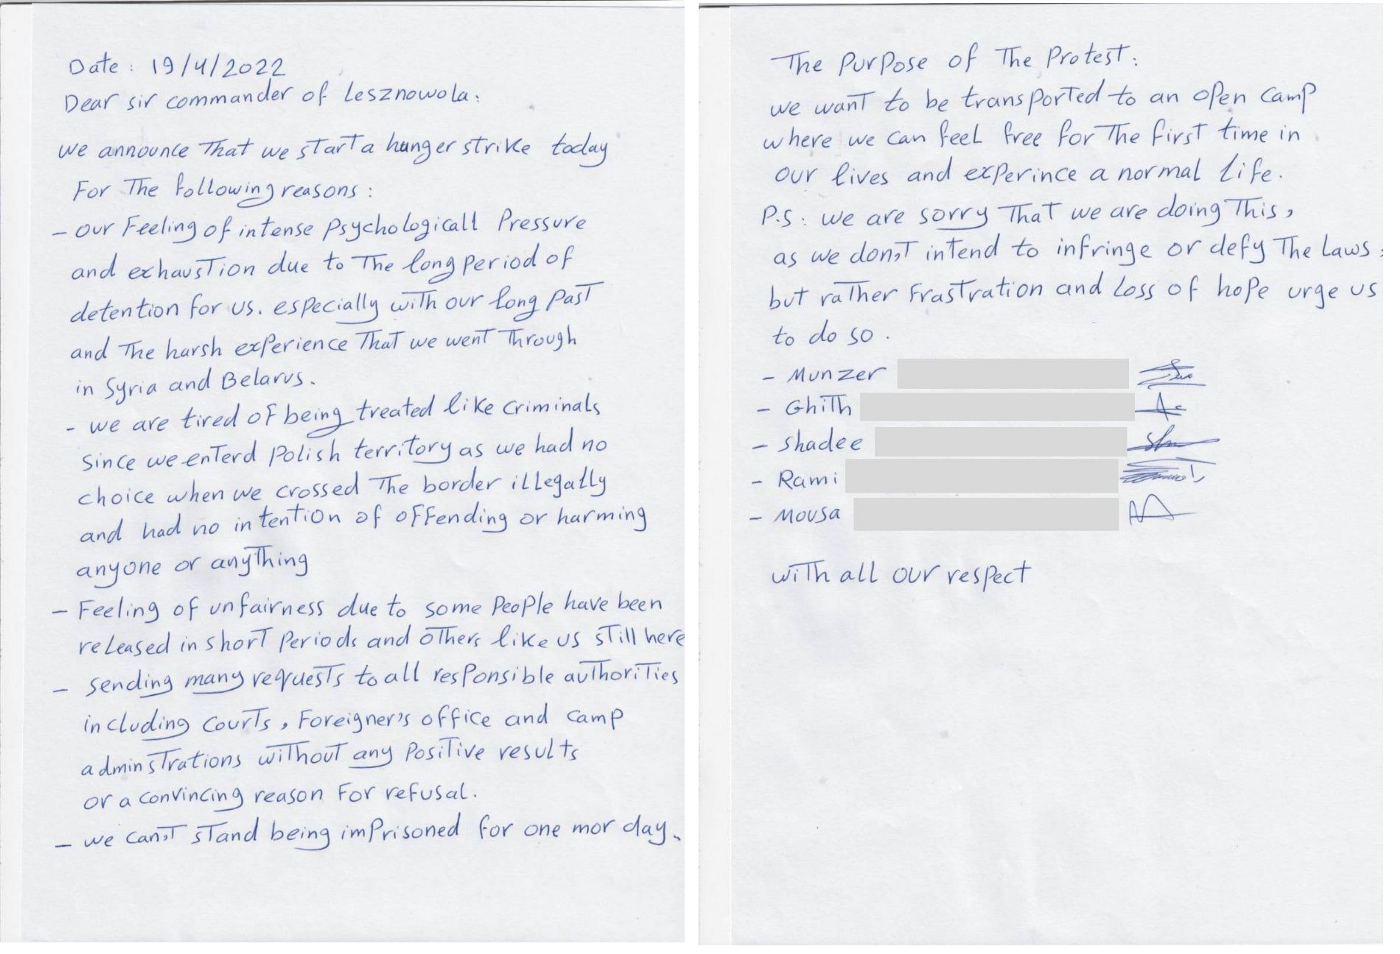 Date: 19/4/2022
Dear sir commander of Lesznowola:
we announce That we start a hunger strike today
For The following reasons:
- our Feeling of intense Psychologicall Pressure
and exhaustion due to The long Period of
detention for us. especially with our long Past
and The harsh experience That we went Through
in Syria and Belarus.
- we are tired of being treated like criminals
since we enterd Polish territory as we had no
choice when we crossed The border illegally
and had no intention of offending or harming
anyone or anyThing
- Feeling of unfairness due to some People have been
released in short Periods and oThers like us still here
- sending many requests to all responsible auThorities
including courts, Foreigner's office and camp
adminstrations wiThout any Positive results
or a convincing reason For refusal.
- we can,t stand being imprisoned for one mor day.
The Purpose of The Protest:
we want to be transported to an open camp
where we can feel free for The first time in
our lives and experince a normal life.
P.S: we are sorry That we are doing This,
as we don,t intend to infringe or defy The Laws:
but raTher Frastration and Loss of hope urge us
to do so.
- Munzer
- GhiTh
- shadee
- Rami
- Mousa
wiTh all our respect